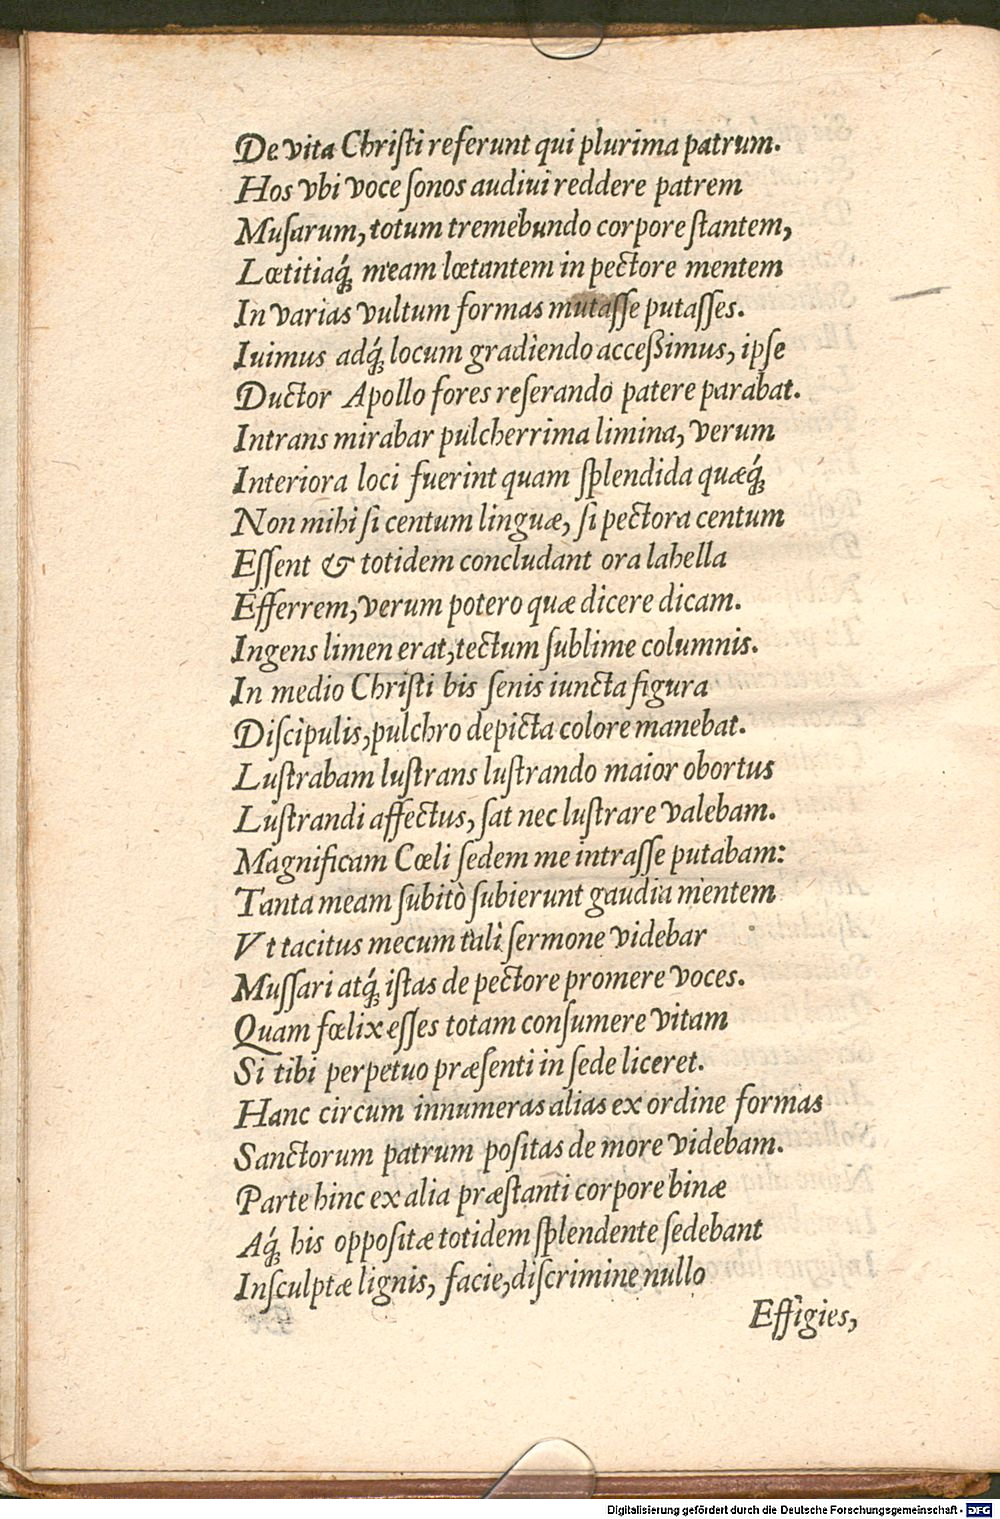 De vita Chriſti referunt qui plurima patrum.
Hos vbi voce ſonos audiui reddere patrem
Muſarum, totum tremebundo corpore ſtantem,
Lœtitiaq́; meam lœtantem in pectore mentem
In varias vultum formas mutaſſe putaſſes.
Iuimus adq́; locum gradiendo acceßimus, ipſe
Ductor Apollo fores reſerando patere parabat.
Intrans mirabar pulcherrima limina, verum
Interiora loci fuerint quam ſplendida quæq́;
Non mihi ſi centum linguæ, ſi pectora centum
Eſſent & totidem concludant ora labella
Efferrem, verum potero quæ dicere dicam.
Ingens limen erat, tectum ſublime columnis.
In medio Chriſti bis ſenis iuncta figura
Diſcipulis, pulchro depicta colore manebat.
Luſtrabam luſtrans luſtrando maior obortus
Luſtrandi affectus, ſat nec luſtrare valebam.
Magnificam Cœli ſedem me intraſſe putabam:
Tanta meam ſubitò ſubierunt gaudia mentem
Vt tacitus mecum tali ſermone videbar
Muſſari atq́; iſtas de pectore promere voces.
Quam fœlix eſſes totam conſumere vitam
Si tibi perpetuo præſenti in ſede liceret.
Hanc circum innumeras alias ex ordine formas
Sanctorum patrum poſitas de more videbam.
Parte hinc ex alia præſtanti corpore binæ
Aq́; his oppoſitæ totidem ſplendente ſedebant
Inſculptæ lignis, facie, diſcrimine nullo
Effigies,
Digitalisierung gefördert durch die Deutsche Forschungsgemeinschaft - DFG